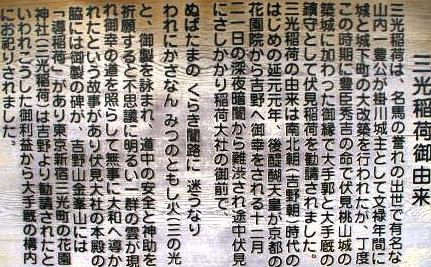 三光稲荷御由来
三光稲荷は、名馬の誉れの出世で有名な
山内一豊公が掛川城主として文禄年間に
城と城下町の大改築を行われたが、丁度
この時期に豊臣秀吉の命で伏見桃山城の
築城に加わった御縁で大手郭と大手厩の
鎮守として伏見稲荷を勧請されました。
三光稲荷の由来は南北朝(吉野朝)時代の
はじめの延元元年、後醍醐天皇が京都の
花園院から吉野へ御幸をされる十二月
二一日の深夜暗闇から難渋され途中伏見
にさしかかり稲荷大社の御前で、
ぬばたまの くらき闇路に 迷うなり
われにかさなん みつのともし火(三の光
と、御製を詠まれ、道中の安全と神助を
祈願すると不思議に明るい一群の雲が現
れ御幸の道を照らして無事に大和へ導か
れたという故事があり伏見大社の本殿の
脇には御製の碑が、吉野山金峯山には
導稲荷」があり東京新宿三光町の花園
神社(三光稲荷)は吉野より勧請されたと
いわれごうした御利益から大手厩の構内
にお祀りされました。